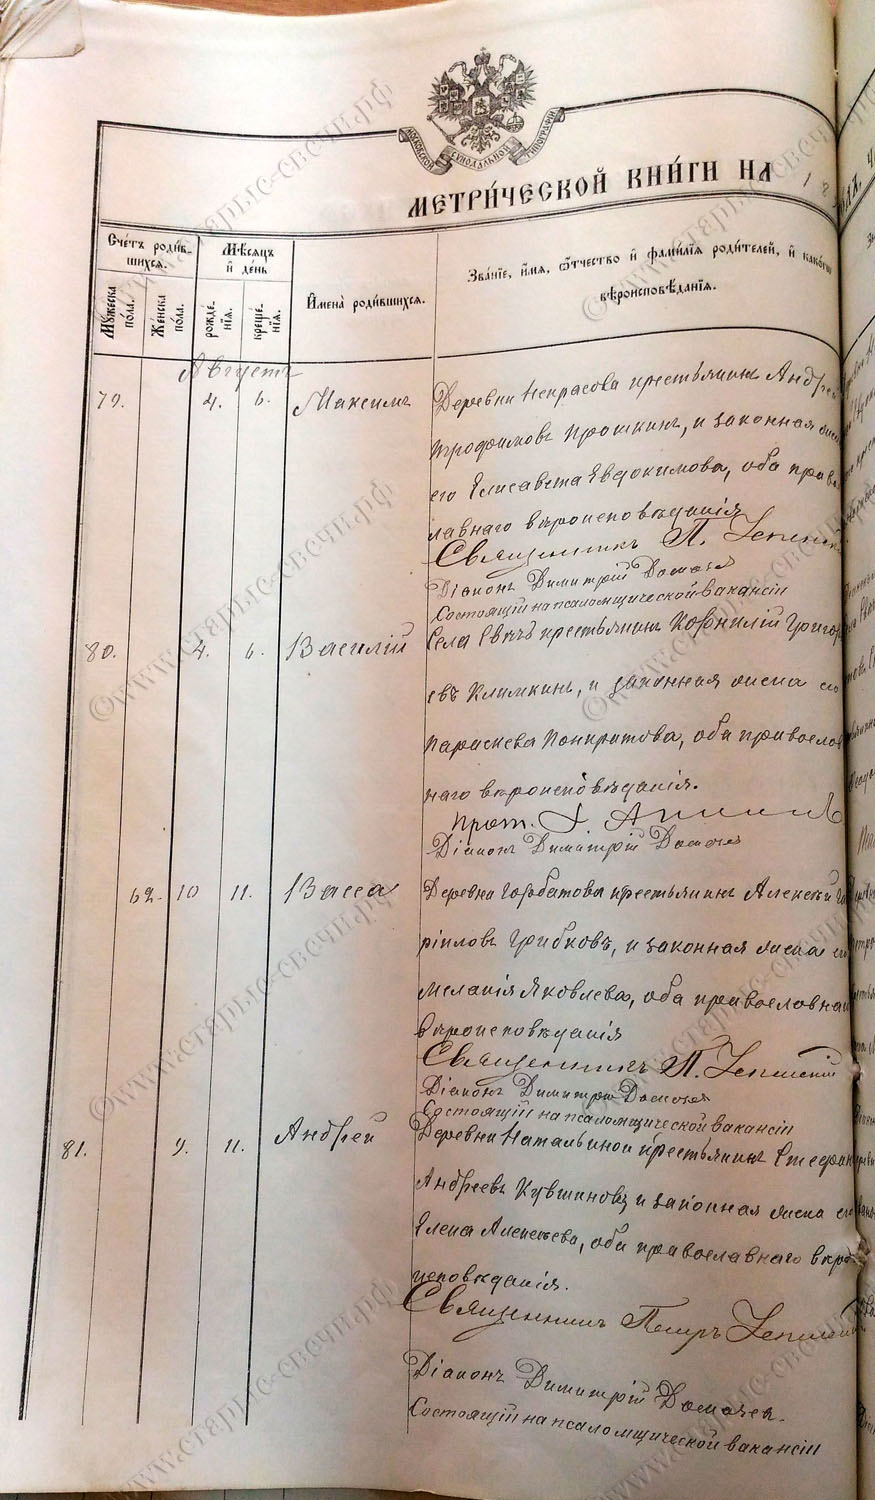 МОСКОВСКОЙ СѴНОДАЛЬНОЙ ТИПОГРАФІИ
МЕТРИ́ЧЕСКОЙ КНИ́ГИ НА 18
Сче́тъ роди́в-
шихся.
Мѣ́сяцъ
и҆ де́нь
Мꙋ́жеска
по́ла.
Же́нска
по́ла.
рожде-
нїя.
креще-
нїя.
И҆мена̀ роди́вшихся.
Зва́нїе, и҆́мя, ѻ҆́тчество и҆ фами́лїя роди́телей, и҆ како́гѡ
вѣроисповѣ́данїя.
Августъ
79. 4. 6. Максимъ
Деревни Некрасова крестьянинъ Андрей
Трофимовъ Прошкинъ, и законная жена
его Елисавета Евдокимова, оба право
славнаго вѣроисповѣданія
Священникъ П.
Діаконъ Димитрій
Состоящій на псаломщической вакансіи
80. 4. 6. Василій
Села крестьянинъ Корнилій Григорь
евъ Климкинъ, и законная жена его
Параскева Панкратова, оба православ
наго вѣроисповѣданія.
Прот.
Діаконъ Димитрій
62. 10 11. Васса
Деревни Горбатова крестьянинъ Алексѣй Га
ріиловъ Грибковъ, и законная жена его
Меланія Яковлева, оба православнаго
вѣроисповѣданія
Священникъ П.
Діаконъ Димитрій
Состоящій на псаломщической вакансіи
81. 9. 11. Андрей
Деревни Натальиной крестьянинъ Стефанъ
Андреевъ Кувшиновъ и законная жена его
Елена Алексѣева, оба православнаго вѣро
исповѣданія.
Священникъ Петръ
Діаконъ Димитрій
Состоящій на псаломщической вакансіи
©www.старые-свечи.рф